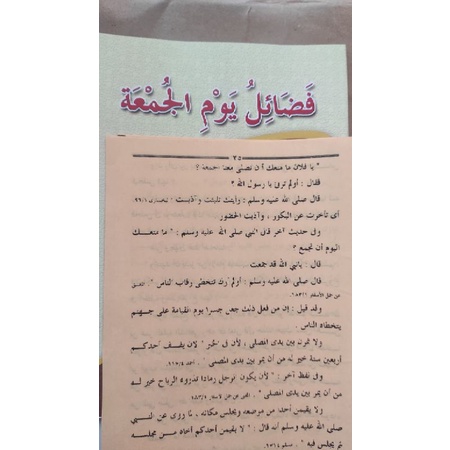 فَضَائِلُ يَوْمِ الجُمْعَة
٢٥
" يا فلان ما منعك أن تصلى معنا الجمعة ؟
فقال : أولم ترنى يا رسول الله ؟
قال صلى الله عليه وسلم : رأيتك تأنيت وآذيت "
أى تأخرت عن البكور ، وآذيت الحضور
وفى حديث آخر قال النبي صلى الله عليه وسلم : " ما منعك
اليوم أن تجمع ؟
قال : يانبي الله قد جمعت
قال صلى الله عليه وسلم : أولم أرك تتخطى رقاب الناس "
وقد قيل : إن من فعل ذلك جعل جسرا يوم القيامة على جهنم
يتخطاه الناس .
ولا يمرن بين يدى المصلى ، لأن فى الخبر " لأن يقف أحدكم
أربعين سنة خير له من أن يمر بين يدى المصلى " .
وفى لفظ آخر : " لأن يكون الرجل رمادا تذروه الرياح خير له
من أن يمر بين يدى المصلى " .
ولا يقيمن أحدا من موضعه ويجلس مكانه ، لما روى عن النبي
صلى الله عليه وسلم أنه قال : " لا يقيمن أحدكم أخاه من مجلسه
ثم يجلس فيه " .